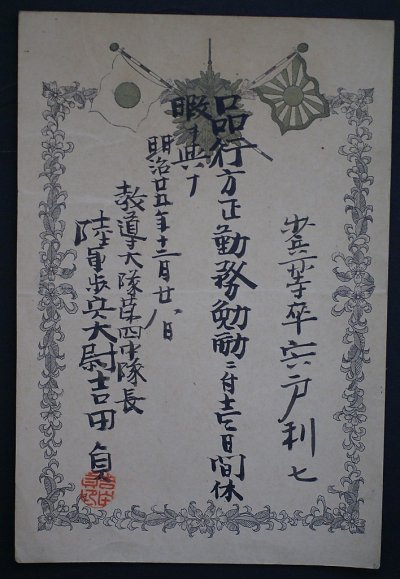 歩兵一等卒 宍戸利七
品行方正勤務勉励ニ付壱日間休
暇ヲ与フ
明治廿五年十二月廿八日
教導大隊第四中隊長
陸軍歩兵大尉吉田貞